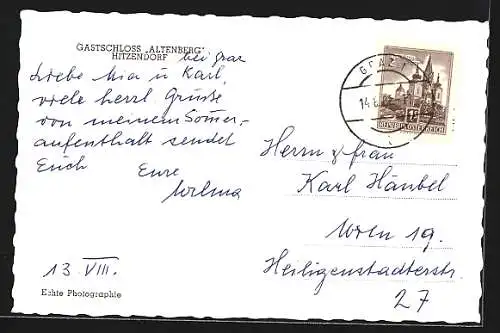 GASTSCHLOSS „ALTENBERG"
HITZENDORF bei Graz
Liebe Mia u Karl,
viele herzl Grüsse
von meinem Sommer-
aufenthalt sendet
Euch Eure
Wilma
13 VIII.
Echte Photographie
GRAZ 1
14.8.
REPUBLIK ÖSTERREICH
Herrn & Frau
Karl Hänbel
Wien 19.
Heiligenstadterstr.
27